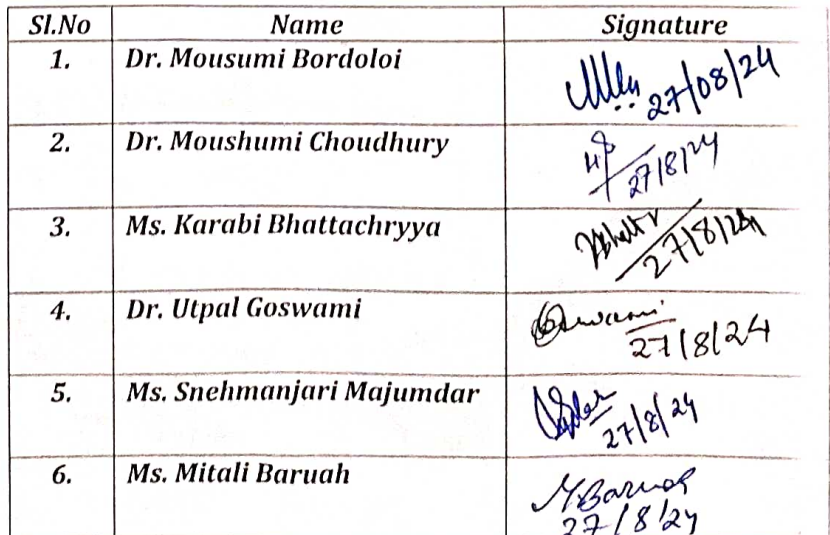 Sl.No Name Signature
1. Dr. Mousumi Bordoloi
27/08/24
2. Dr. Moushumi Choudhury
27/8/24
3. Ms. Karabi Bhattachryya
27/8/24
4. Dr. Utpal Goswami
27/8/24
5. Ms. Snehmanjari Majumdar
27/8/24
6. Ms. Mitali Baruah
M.Baruah
27/8/24